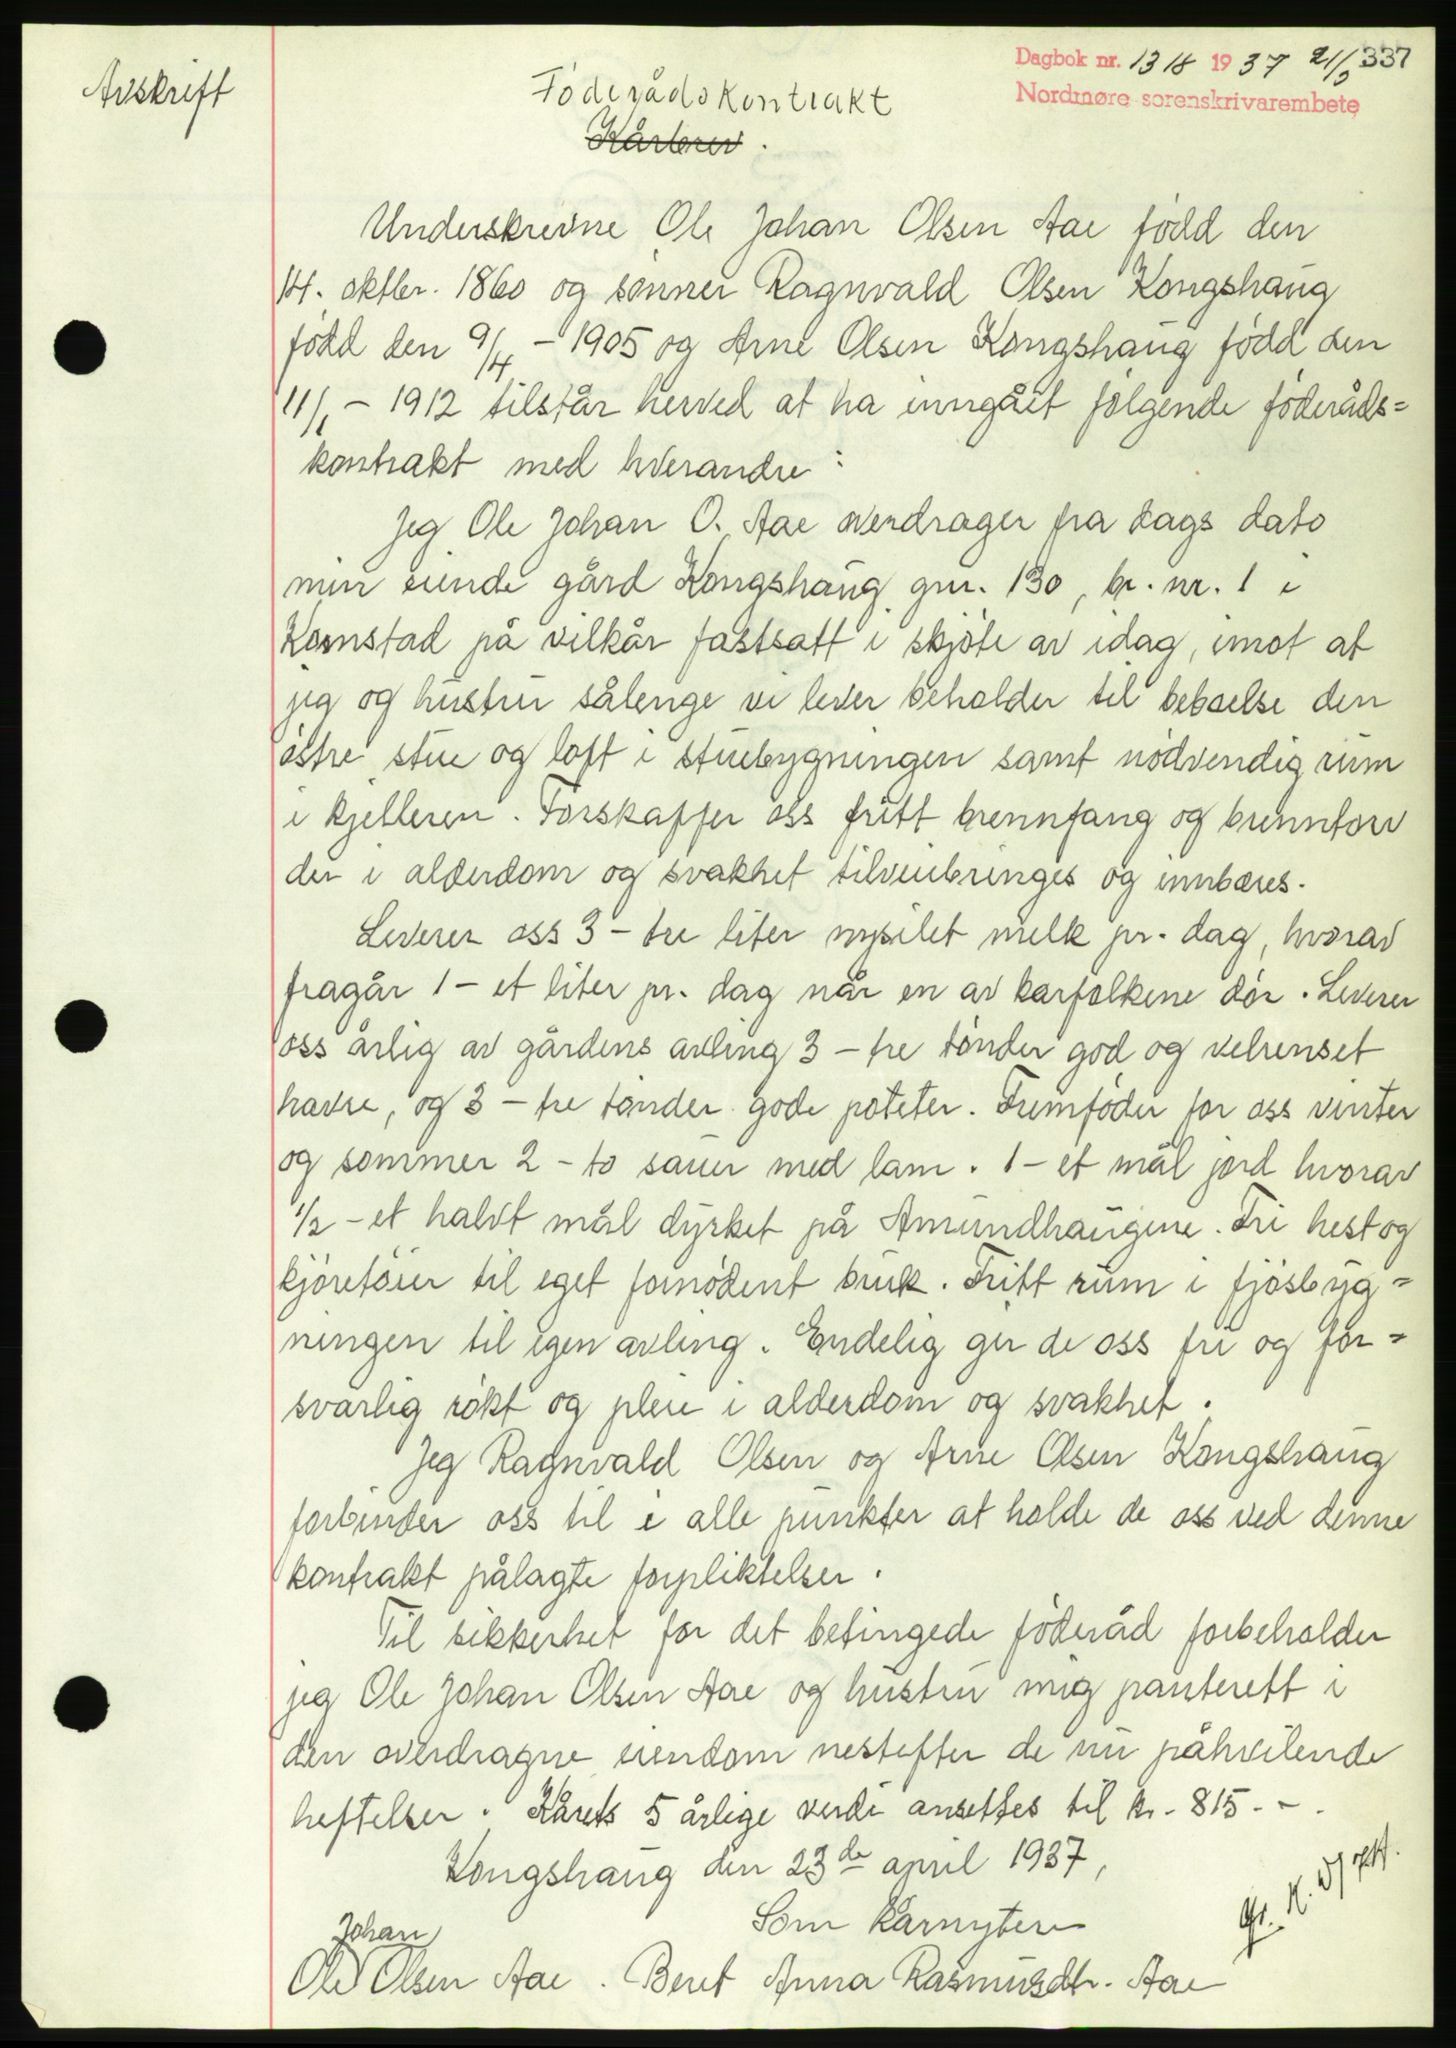 Avskrift
Dagbok nr. 1318 1937 21/5 337
Nordmøre sorenskrivarembete
Föderådskontrakt
Kårbrev.
Underskrevne Ole Johan Olsen Aae född den
14. oktbr. 1860 og sönner Ragnvald Olsen Kongshaug
född den 9/4 - 1905 og Arne Olsen Kongshaug född den
11/1 - 1912 tilstår herved at ha inngået fölgende föderåds=
kontrakt med hverandre:
Jeg Ole Johan O. Aae overdrager fra dags dato
min eiende gård Kongshaug gnr. 130, br. nr. 1 i
Kornstad på vilkår fastsatt i skjöte av idag, imot at
jeg og hustru sålenge vi lever beholder til beboelse den
östre stue og loft i stuebygningen samt nödvendig rum
i kjelleren. Forskaffer oss fritt brennfang og brenntorv
der i alderdom og svakhet tilveiebringes og innbæres.
Leverer oss 3 - tre liter nysilet melk pr. dag, hvorav
fragår 1 - et liter pr. dag når en av karfolkene dör. Leverer
oss årlig av gårdens avling 3 - tre tönder god og velrenset
havre, og 3 - tre tönder gode poteter. Fremföder for oss vinter
og sommer 2 - to sauer med lam. 1 - et mål jord hvorav
1/2 - et halvt mål dyrket på Amundhaugene. Fri hest og
kjöretöier til eget fornödent bruk. Fritt rum i fjösbyg=
ningen til egen avling. Endelig gir de oss fri og for=
svarlig rökt og pleie i alderdom og svakhet.
Jeg Ragnvald Olsen og Arne Olsen Kongshaug
forbinder oss til i alle punkter at holde de oss ved denne
kontrakt pålagte forpliktelser.
Til sikkerhet for det betingede föderåd forbeholder
jeg Ole Johan Olsen Aae og hustru mig panterett i
den overdragne eiendom nestefter de nu påhvilende
heftelser. Kårets 5 årlige verdi ansettes til kr. 815.-.
Kongshaug den 23de april 1937,
Som kårnytere
Johan
Ole Olsen Aae. Beret Anna Rasmusdtr. Aae